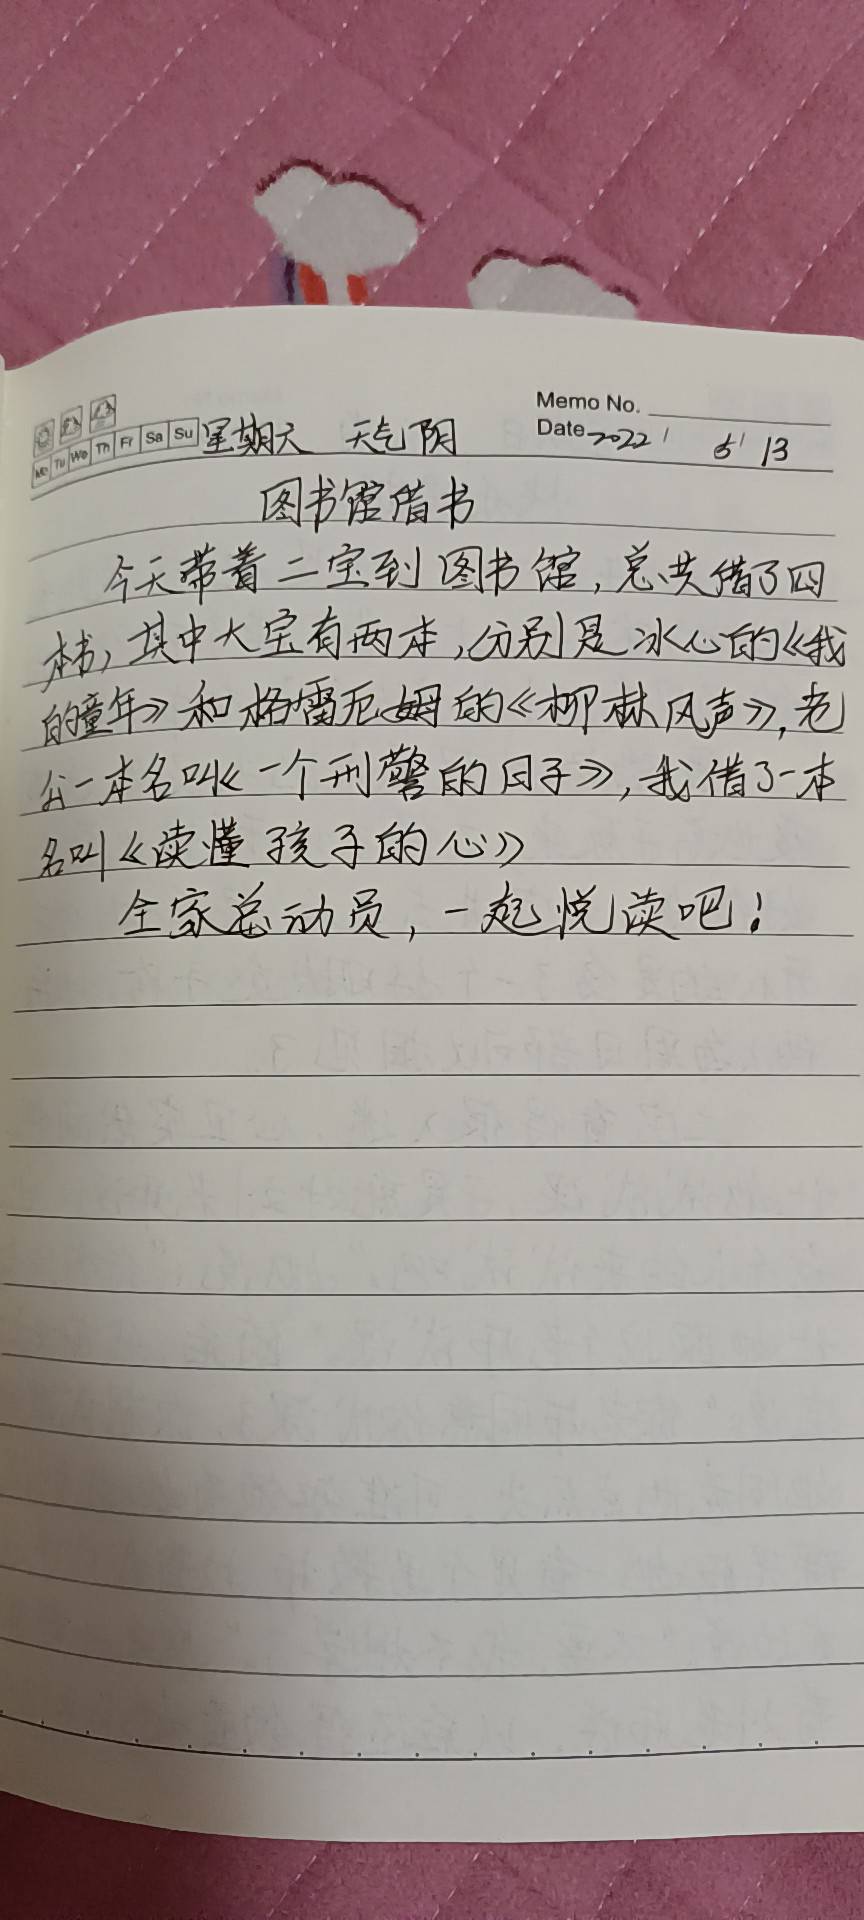 Memo No.
Mo Tu We Th Fr Sa Su 星期天 天气阴 Date 2022 / 5 / 13
图书馆借书
今天带着二宝到图书馆,总共借了四
本书,其中大宝有两本,分别是冰心的《我
的童年》和格雷厄姆的《柳林风声》,老
公一本名叫《一个刑警的日子》,我借了一本
名叫《读懂孩子的心》
全家总动员,一起悦读吧!